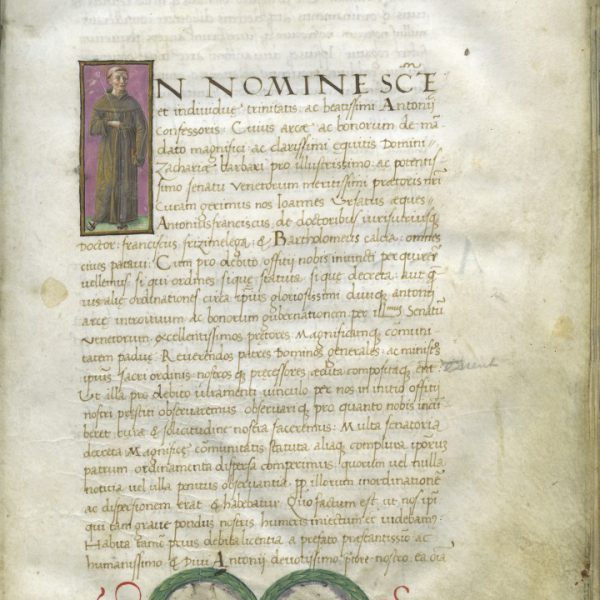 IN NOMINE SCE
et individue trinitatis ac beatissimi Antonij
confessoris: Cuius arce ac bonorum de mã
dato magnifici ac clarissimi equitis Domini
Zacharie Barbari pro illustrissimo ac potentis
simo senatu Venetorum meritissimi pretoris nri
Curam gerimus nos Ioannes Ursatus eques
Antonius franciscus de doctoribus iurisutriusq
Doctor: franciscus frizimelega & Bartholomeus calcia: omnes
cives patavi: Cum pro debito offitij nobis iniuncti perquirer
vellemus si qui ordines sique statuta sique decreta: aut q
vis alie ordinationes circa ipius gloriosissimi divi antonij
arce introitum ac bonorum gubernationem per Senatũ
Venetorum excellentissimos pretores Magnificamq cõmuni
tatem padue Reverendos patres Dominos generales: ac minisros
ipius sacri ordinis nostros q precessores edita compositaq erãt
Ut illa pro debito iuramenti vinculo per nos in initio offitij
nostri prestiti observaremus observariq pro quanto nobis incũ
beret cura & solicitudine nostra faceremus: Multa senatoria
decreta Magnifice cõmunitatis statuta aliaq complura iporuz
patrum ordinamenta dispersa comperimus: quorum vel nulla
notitia vel illa penitus observantia pp illorum inordinationẽ
ac dispersionem erat & habebatur Quo factum est ut nos ipi
qui tam grave pondus nostris humeris iniectum videbam:
Habita tamẽ prius debita licentia a prefato prestantissio ac
humanissimo & Divi Antonij devotissimo pretore nostro ea oia